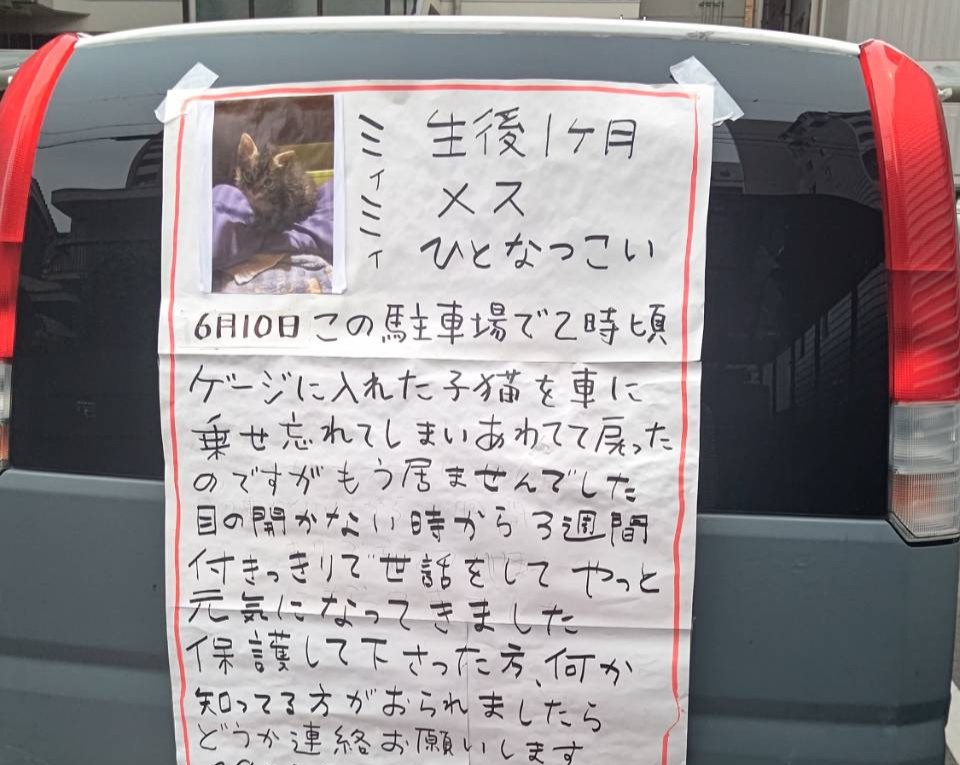 ミィミィ
生後1ヶ月
メス
ひとなつこい
6月10日この駐車場で2時頃
ゲージに入れた子猫を車に
乗せ忘れてしまいあわてて戻った
のですがもう居ませんでした
目の開かない時から3週間
付きっきりで世話をして やっと
元気になってきました
保護して下さった方、何か
知ってる方がおられましたら
どうか連絡お願いします